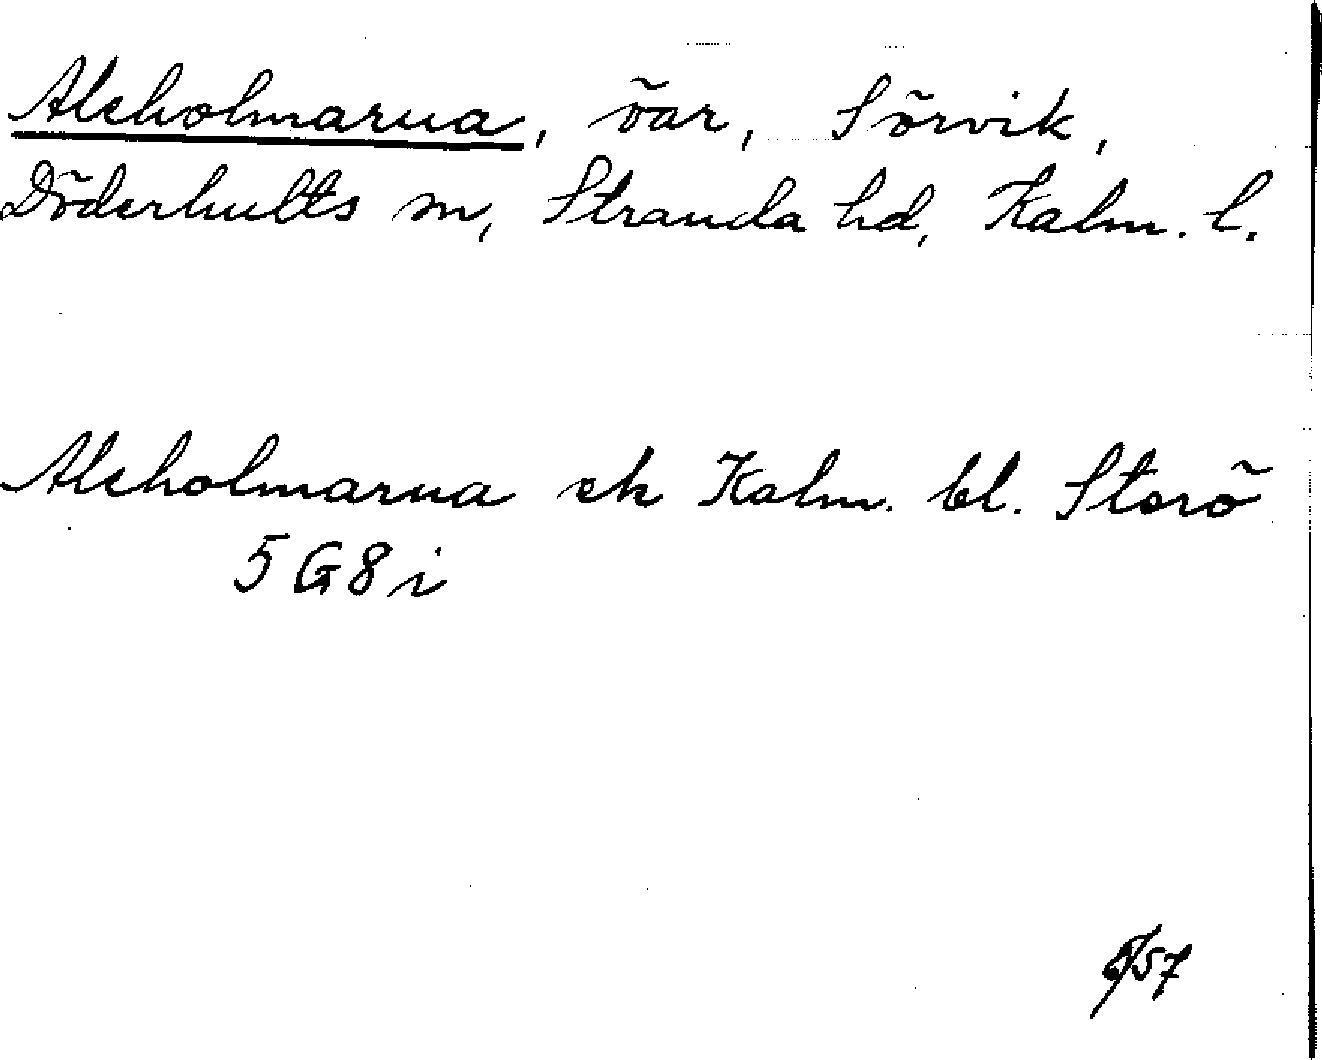 Aleholmarna, öar, Sörvik,
Döderhults sn, Stranda hd, Kalm. l.
Aleholmarna ek Kalm. bl. Storö
5 G 8 i
6/57